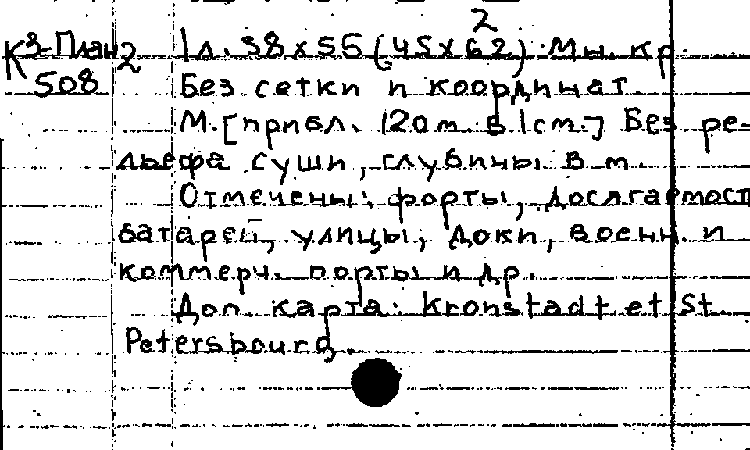 2
К 3-План 2 1 л. 38х56 (45х62) Мн. кр.
508 Без сетки и координат.
М. [прибл. 120 м. в 1 см.] Без ре-
льефа суши, глубины в м.
Отмечены: форты, досягаемост
батарей, улицы, доки, военн. и
коммерч. порты и др.
Доп. карта: Kronstadt et St.
Petersbourg.